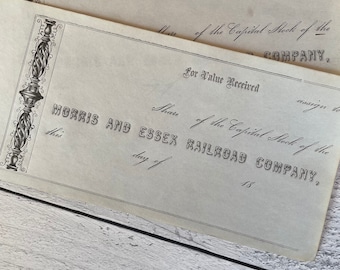 Share of the Capital Stock of the
COMPANY,
For Value Received
assign to
Share of the Capital Stock of the
MORRIS AND ESSEX RAILROAD COMPANY,
this day of 18